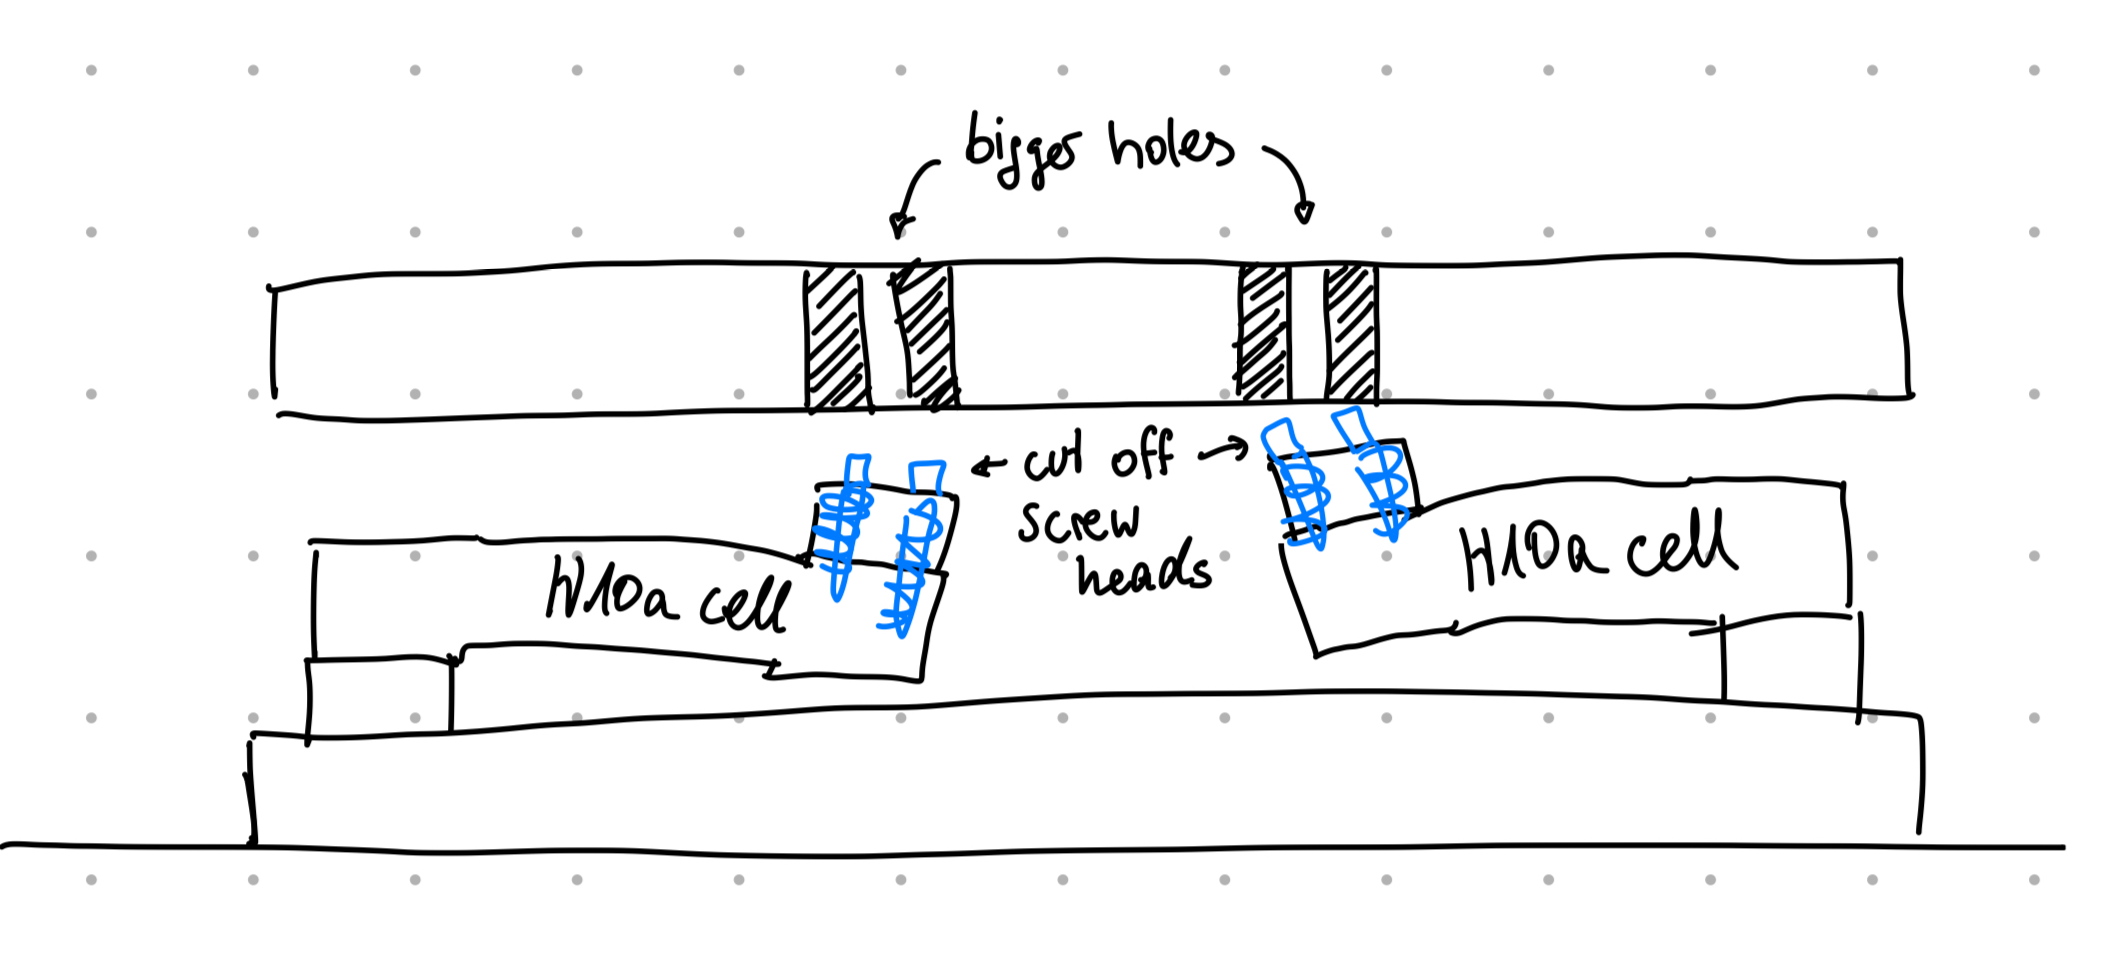 bigger holes
← cut off →
screw
heads
H10a cell
H10a cell